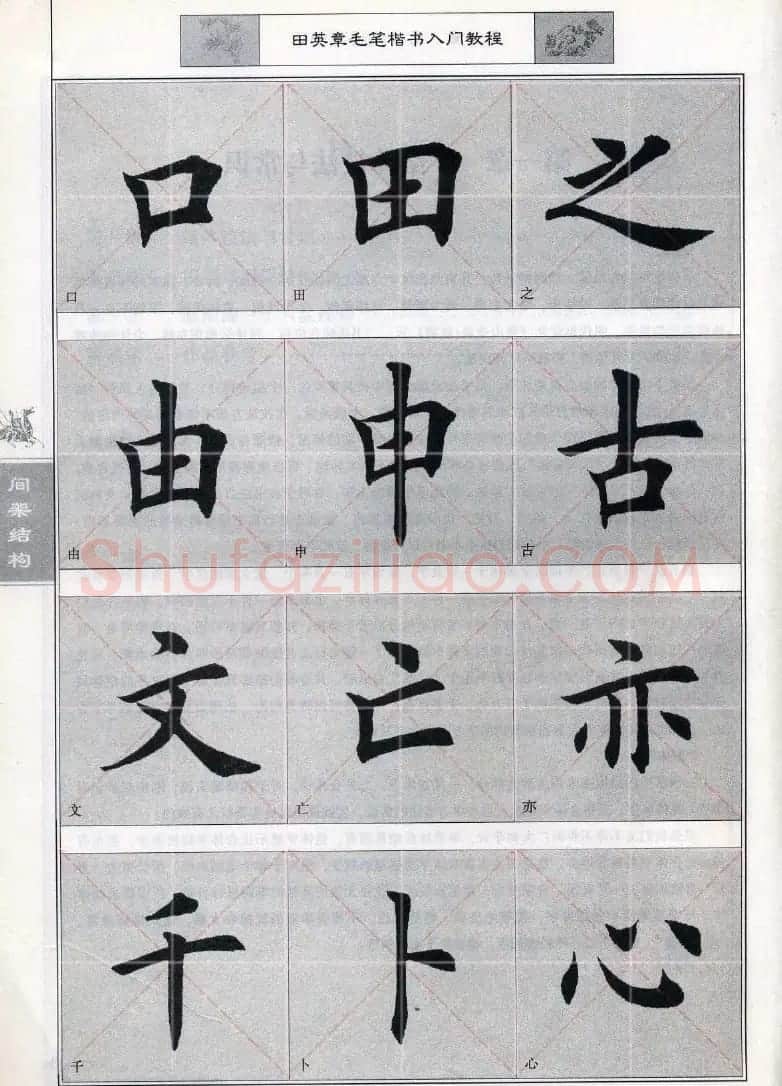 田英章毛笔楷书入门教程
口 田 之
口 田 之
由 申 古
由 申 古
间架结构
Shufaziliao.COM
文 亡 亦
文 亡 亦
千 卜 心
千 卜 心